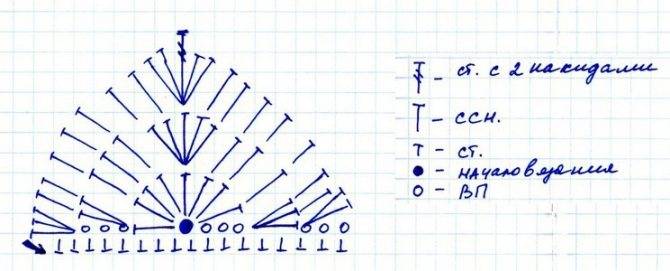 - ст. с 2 накидами
- ссн.
- ст.
- начало вязания
- ВП